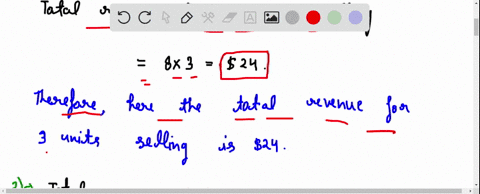 Total
= 8 x 3 = $24.
Therefore, here the total revenue for
3 units selling is $24.